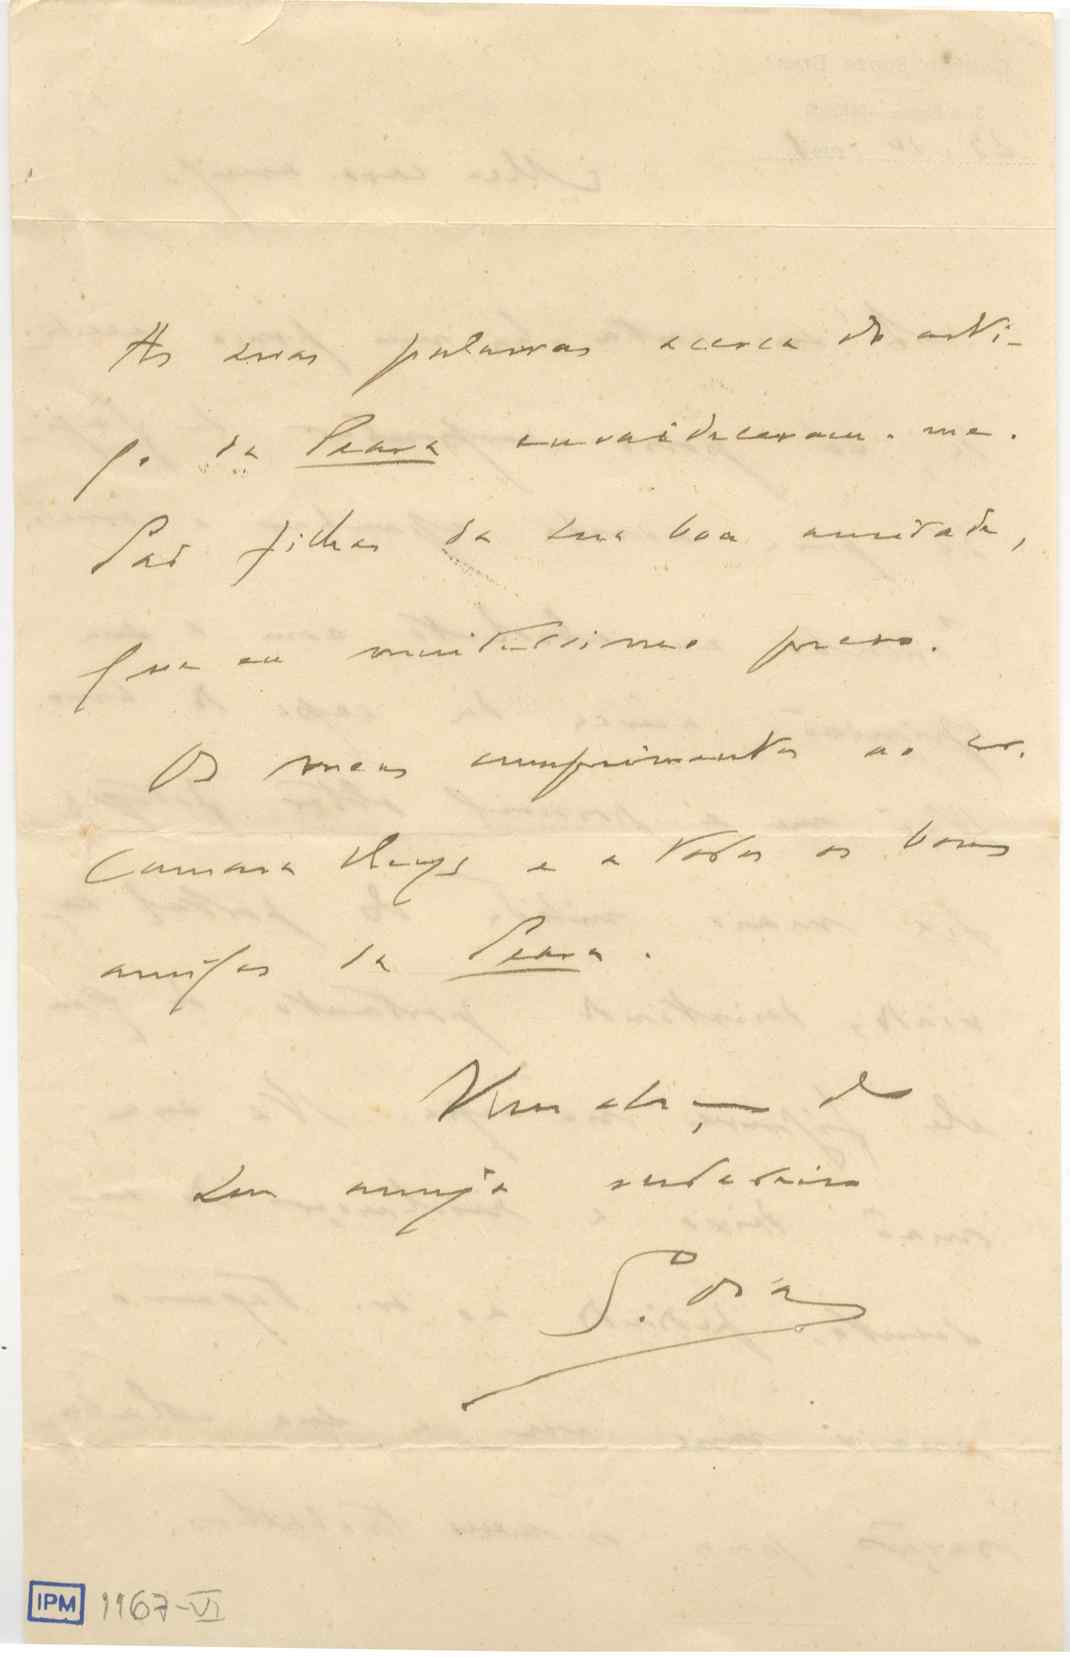 As suas palavras acerca do arti-
go da Seara envaideceram-me.
São filhas da sua boa amizade,
que eu muitissimo preso.
Os meus cumprimentos ao sr.
Camara Reys e a todos os bons
amigos da Seara.
Um abraço do
seu amigo verdadeiro
S. Dias
IPM 1167-VI